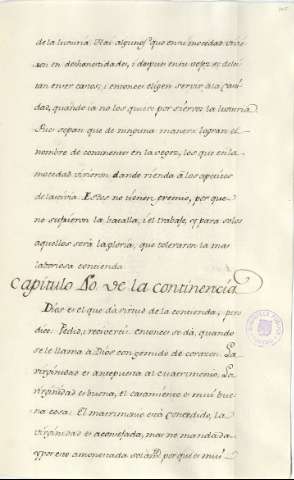 de la luxuria. Hai algunos que en su mocedad vivie
ron en deshonestidades, i despues en su vejez se delei
tan en ser castos; i entonces eligen servir à la casti
dad, quando ia no los quiere por siervos la luxuria.
Pues sepan que de ninguna manera logran el
nombre de continentes en la vegez, los que en la
mocedad vivieron dando rienda à los apetitos
de lascivia. Estos no tienen premio, por que
no sufrieron la batalla, i el trabajo, y para solos
aquellos serà la gloria, que toleraron la mas
laboriosa contienda.
Capitulo de la continencia
Dios es el que dà virtud de la contienda, pero
dice: Pedid, i recivireis: entonces se dà, quando
se le llama à Dios con gemido de corazon. La
virginidad es antepuesta al matrimonio. La
virginidad es buena, el casamiento es mui bue
na cosa. El matrimonio està concedido, la
virginidad es aconsejada, mas no mandada
y por eso amonestada solam.te por que es mui